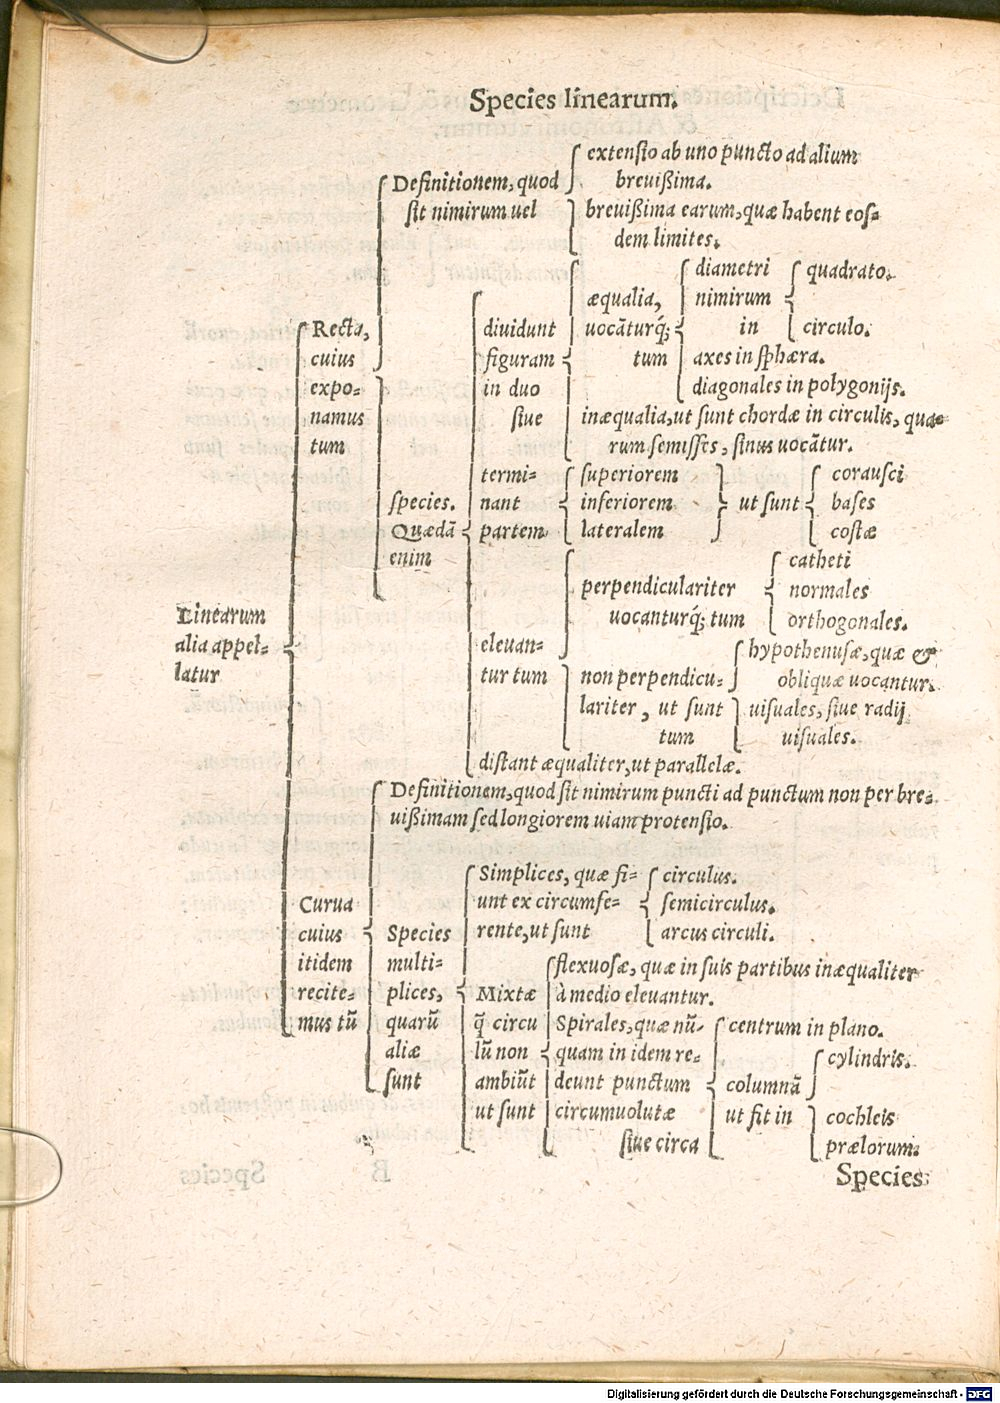 Species linearum.
extensio ab uno puncto ad alium
breuißima.
Definitionem, quod
sit nimirum uel
breuißima earum, quæ habent eos-
dem limites.
Recta,
cuius
expo-
namus
tum
diuidunt
figuram
in duo
siue
æqualia,
uocãturq́;
tum
diametri
nimirum
in
quadrato.
circulo.
axes in sphæra.
diagonales in polygonijs.
inæqualia, ut sunt chordæ in circulis, qua-
rum semisses, sinus uocãtur.
species.
Quædã
enim
termi-
nant
partem
superiorem
inferiorem
lateralem
ut sunt
corausci
bases
costæ
eleuan-
tur tum
perpendiculariter
uocanturq́; tum
catheti
normales
orthogonales.
non perpendicu-
lariter, ut sunt
tum
hypothenusæ, quæ &
obliquæ uocantur.
uisuales, siue radij
uisuales.
distant æqualiter, ut parallelæ.
Linearum
alia appel-
latur
Definitionem, quod sit nimirum puncti ad punctum non per bre-
uißimam sed longiorem uiam protensio.
Curua
cuius
itidem
recite-
mus tũ
Species
multi-
plices,
quarũ
aliæ
sunt
Simplices, quæ fi-
unt ex circumfe-
rente, ut sunt
circulus.
semicirculus.
arcus circuli.
Mixtæ
q̃ circu
lũ non
ambiũt
ut sunt
flexuosæ, quæ in suis partibus inæqualiter
à medio eleuantur.
Spirales, quæ nũ-
quam in idem re-
deunt punctum
circumuolutæ
siue circa
centrum in plano.
columnã
ut fit in
cylindris.
cochleis
prælorum.
Species
Digitalisierung gefördert durch die Deutsche Forschungsgemeinschaft - DFG